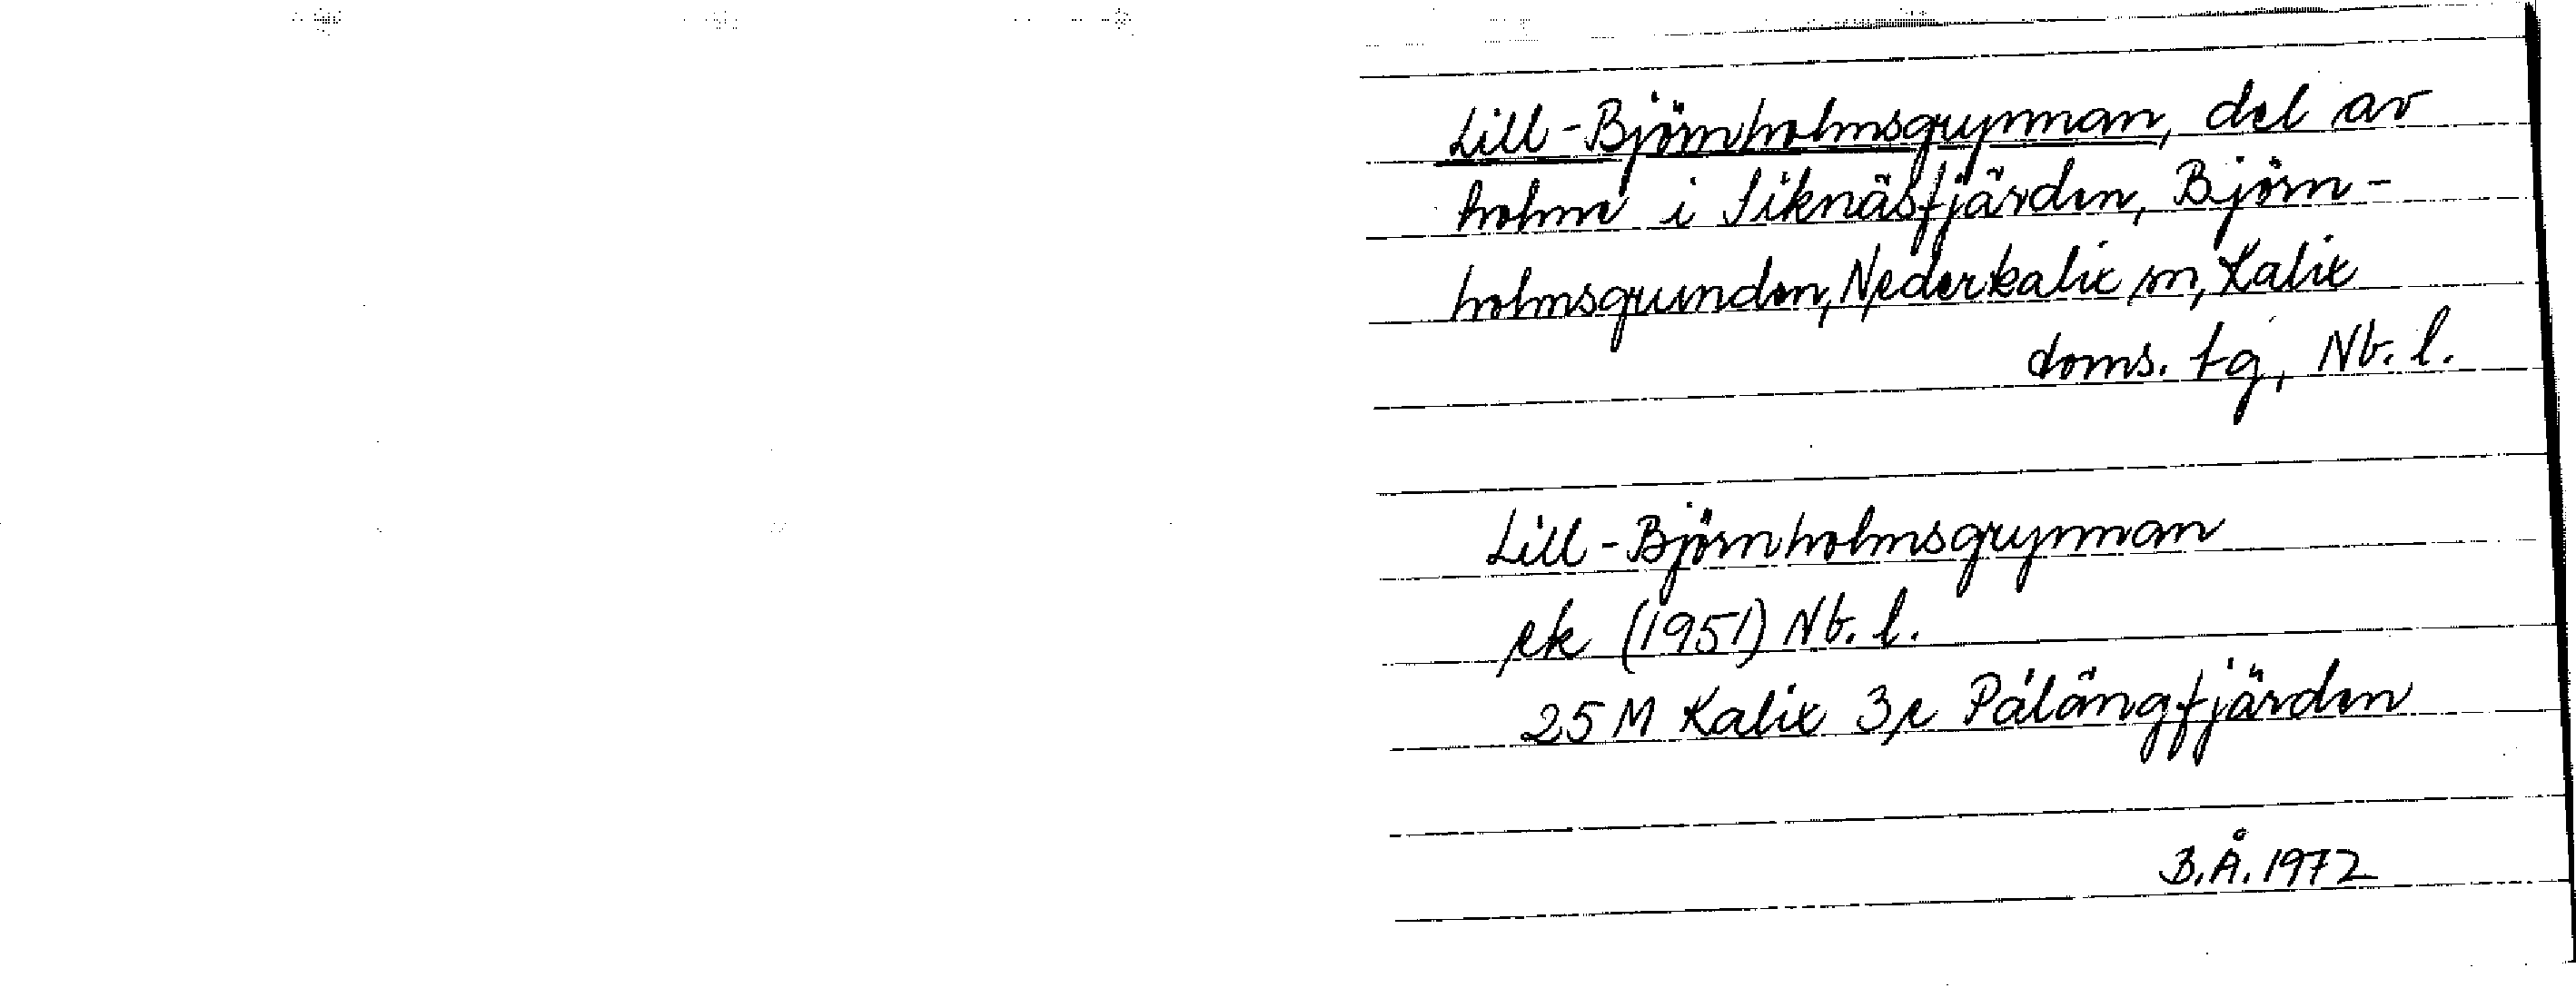 Lill-Björnholmsgrynnan, del av
holme i Siknäsfjärden, Björn-
holmsgrunden, Nederkalix sn, Kalix
doms. tg, Nb. l.
Lill-Björnholmsgrynnan
ek (1951) Nb. l.
25 M Kalix 3e Pålängfjärden
B.Å. 1972